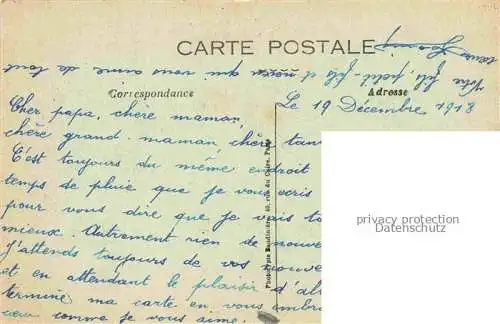 CARTE POSTALE
Votre fils, petit-fils et neveu qui vous aime de tout
son cœur
Correspondance
Adresse
Le 19 Décembre 1918
Cher papa, chère maman,
chère grand-maman, chère tan
C'est toujours du même endroit
temps de pluie que je vous écris
pour vous dire que je vais to
mieux. Autrement rien de nouve
J'attends toujours de vos nouve
et en attendant le plaisir d'al
terminé ma carte en vous embr
cœur comme je vous aime.
privacy protection
Datenschutz